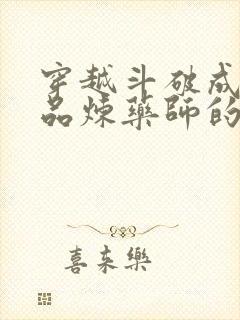 穿越斗破成
品煉藥師的
喜来樂